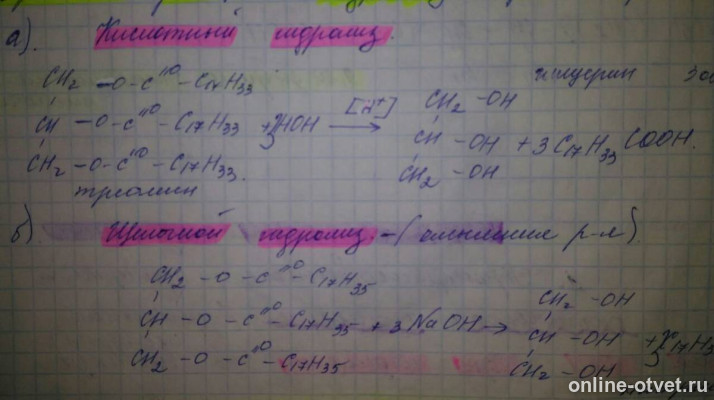 а). Кислотный гидролиз.
глицерин
CH2 -O-C=O-C17H33 CH2-OH
CH -O-C=O-C17H33 + 3HOH [H+] → CH -OH + 3C17H33COOH.
CH2 -O-C=O-C17H33. CH2 -OH
триолеин
б) Щелочной гидролиз -(омыление р-я).
CH2 -O-C=O-C17H35 CH2 -OH
CH -O-C=O-C17H35 + 3NaOH → CH -OH + 3C17H3
CH2 -O-C=O-C17H35 CH2-OH
online-otvet.ru